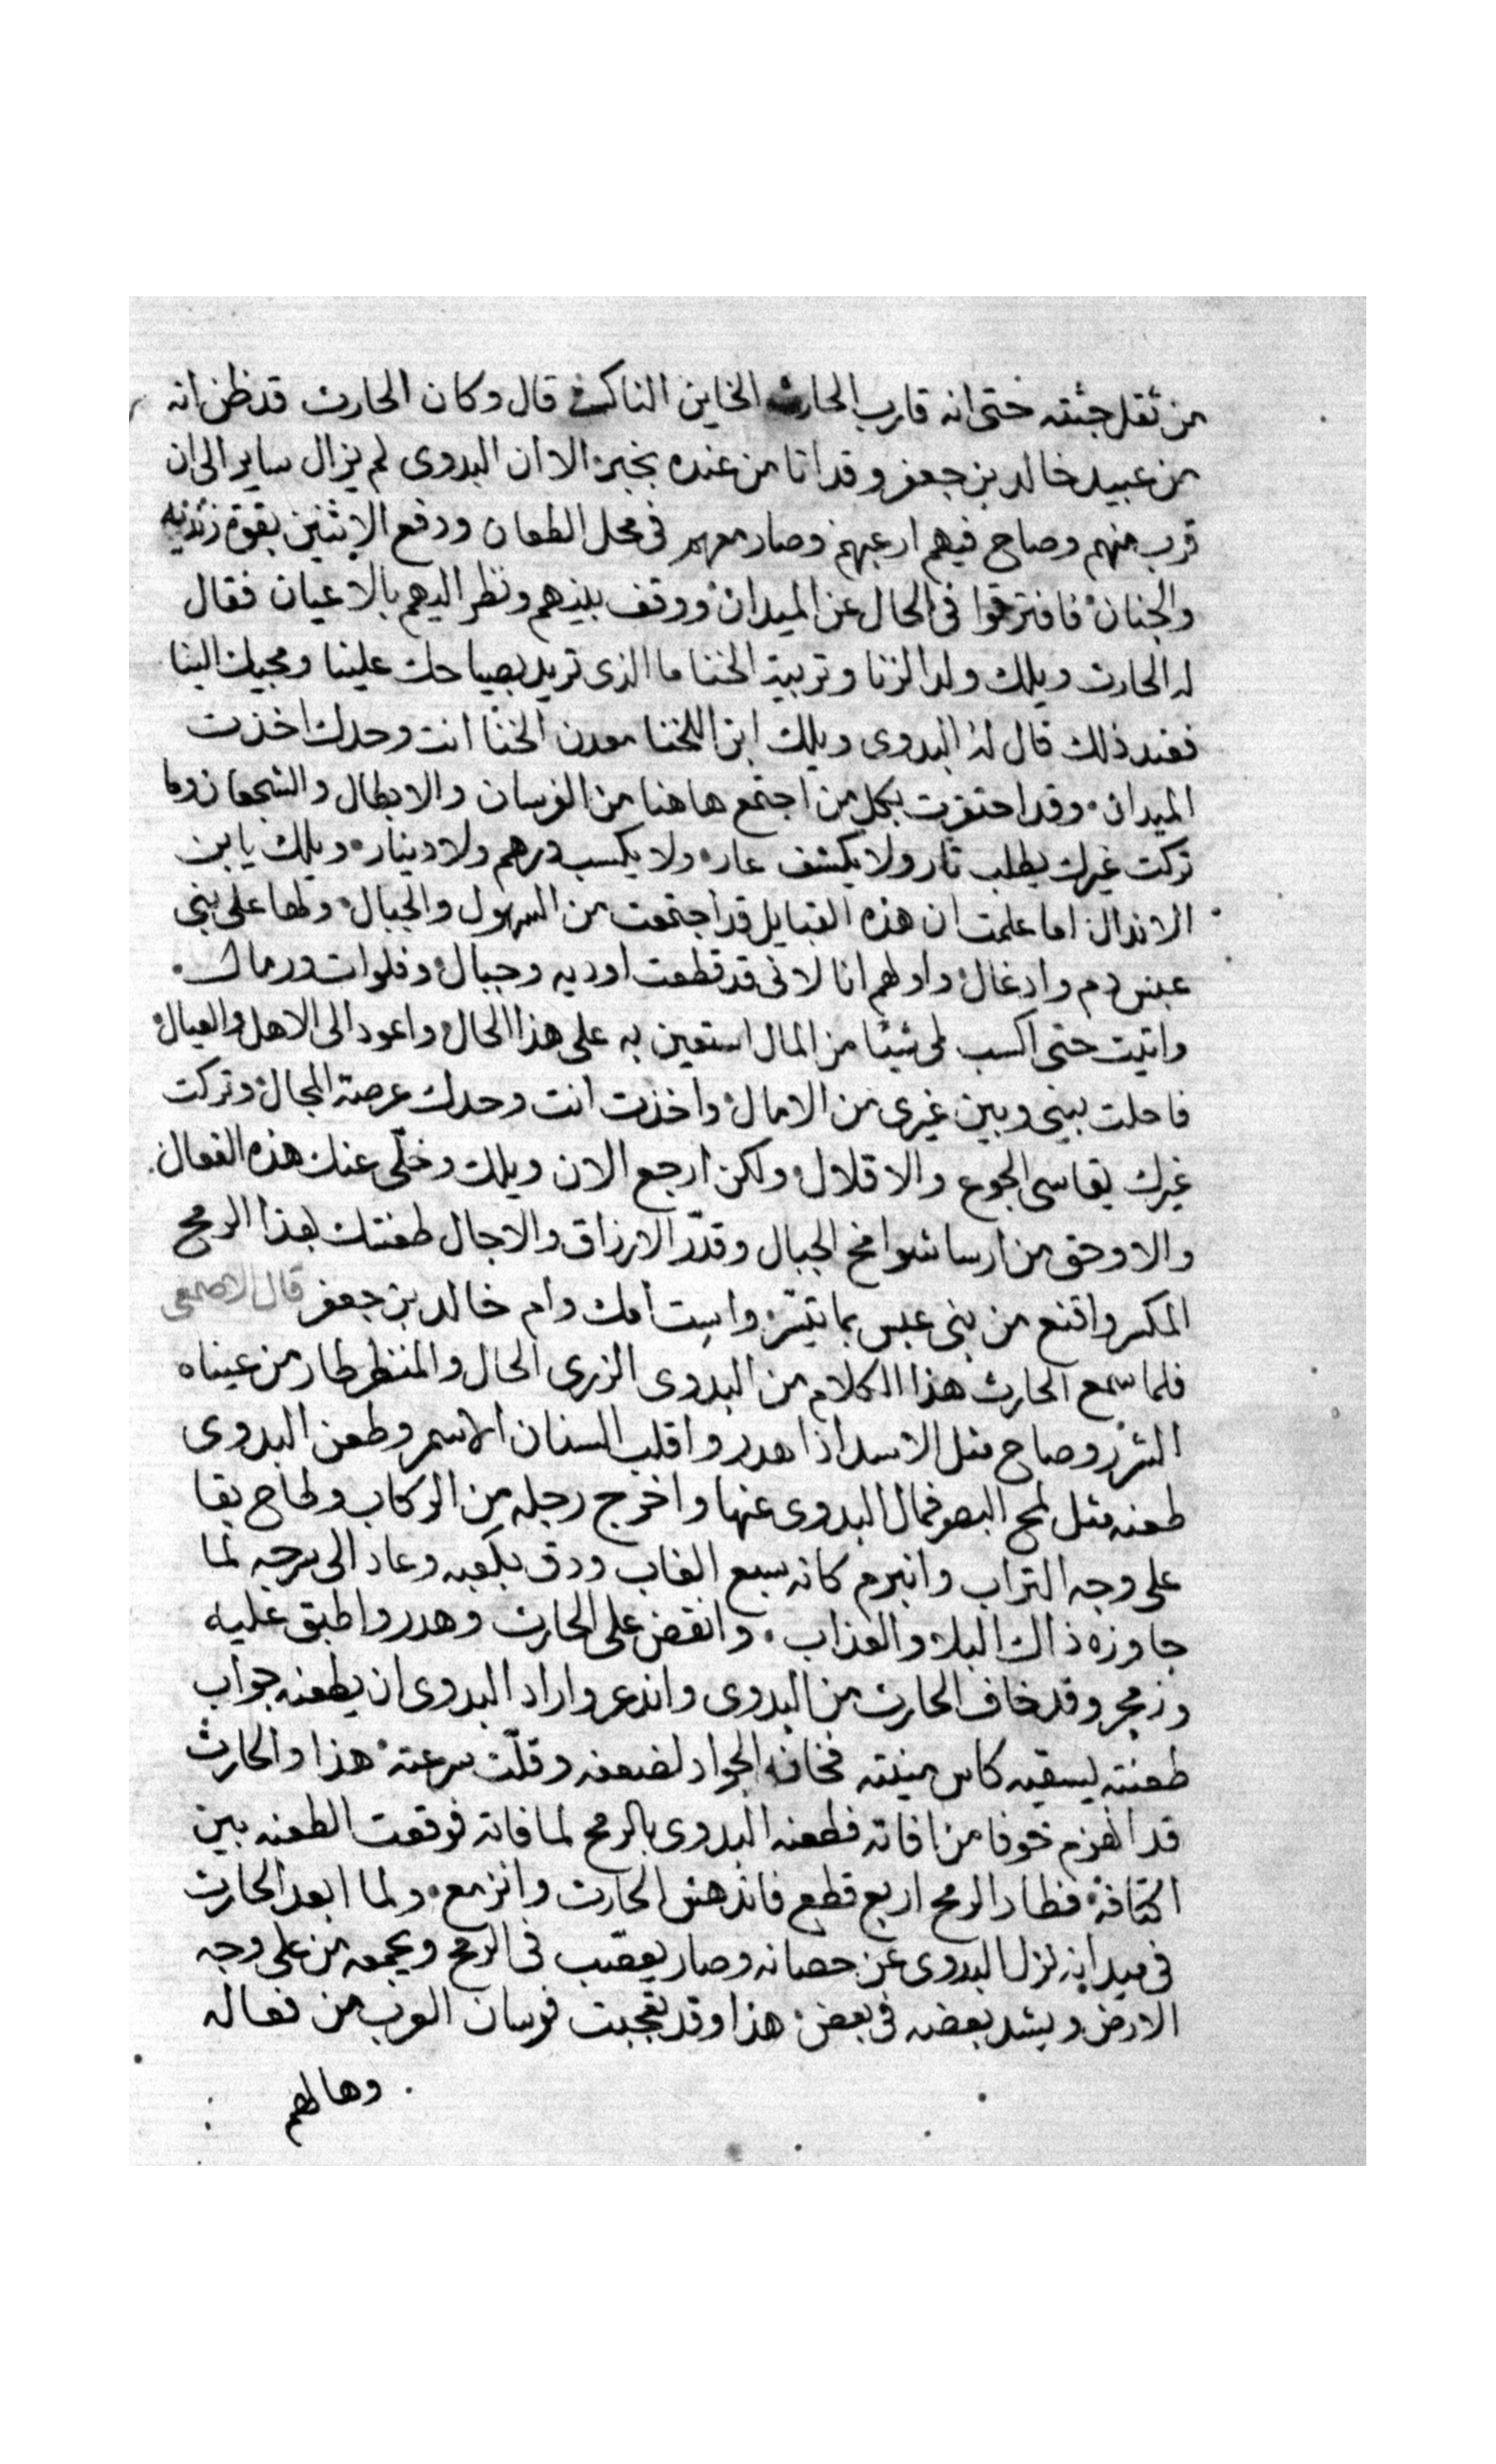 من ثقل جثته حتى انه قارب الحارث الخاين الناكث قال وكان الحارث قد ظن انه
من عبيد خالد بن جعفر وقد اتا من عنده بخبر الا ان البدوى لم يزال ساير الى ان
قرب منهم وصاح فيهم ارعبهم وصار معهم فى محل الطعان ودفع الاثنين بقوة زنديه
والجنان فافترقوا فى الحال عن الميدان ووقف بينهم ونظر اليهم بالاعيان فقال
له الحارث ويلك ولد الزنا وتربية الخنا ما الذى تريد بصياحك علينا ومجيك الينا
فعند ذلك قال له البدوى ويلك ابن اللخنا معدن الخنا انت وحدك اخذت
الميدان وقد احتقرت بكل من اجتمع هاهنا من الفرسان والابطال والشجعان وما
تركت غيرك يطلب تار ولا يكشف عار ولا يكسب درهم ولا دينار ويلك يا بن
الاندال اما علمت ان هذه القبايل قد اجتمعت من السهول والجبال ولها على بنى
عبس دم وادغال واولهم انا لانى قد قطعت اوديه وجبال وفلوات ورمال
واتيت حتى اكسب لى شيئا من المال استعين به على هذا الحال واعود الى الاهل والعيال
فاحلت بينى وبين غيرى من الامال واخذت انت وحدك عرصة المجال وتركت
غيرك يقاسى الجوع والاقلال ولكن ارجع الان ويلك وخلّى عنك هذه الفعال
والا وحق من ارسا شوامخ الجبال وقدّر الارزاق والاجال طعنتك بهذا الرمح
المكسر واقنع من بنى عبس بما تيسّر واست امك وام خالد بن جعفر قال الاصمعى
فلما سمع الحارث هذا الكلام من البدوى الزرى الحال والمنظر طار من عيناه
الشرر وصاح مثل الاسد اذا هدر واقلب السنان الاسمر وطعن البدوى
طعنه مثل لمح البصر فمال البدوى عنها واخرج رجله من الركاب ولحاح بقا
على وجه التراب وانبرم كانه سبع الغاب ودق بكعبه وعاد الى سرجه لما
جاوزه ذاك البلا والعذاب وانقض على الحارث وهدر واطبق عليه
وزمجر وقد خاف الحارث من البدوى واندعر واراد البدوى ان يطعنه جواب
طعنته ليسقيه كاس منيته فخانه الجواد لضعفه وقلّت سرعته هذا والحارث
قد انهزم خوفا من افاته فطعنه البدوى بالرمح لما فاته فوقعت الطعنه بين
اكتافه فطار الرمح اربع قطع فاندهش الحارث وانزمع ولما ابعد الحارث
فى ميدانه نزل البدوى عن حصانه وصار يعقب فى الرمح ويجمعه من على وجه
الارض ويشد بعضه فى بعض هذا وقد تعجبت فرسان العرب من فعاله
وهالهم